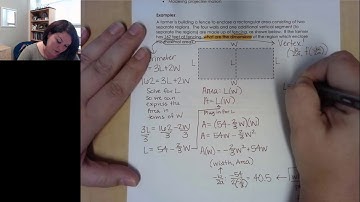 Modeling projectile motion
Examples:
A farmer is building a fence to enclose a rectangular area consisting of two
separate regions. The four walls and one additional vertical segment (to
separate the regions) are made up of fencing, as shown below. If the farmer
has 162 feet of fencing, what are the dimensions of the region which enclose
W
Vertex!
Perimeter
= 3L + 2W
L
L
L
162 = 3L + 2W
W
Solve for L
so we can
express the
Area in
terms of W
Area: L(W)
A = L(W)
Plug in for L
A = (54 - 2/3 W)(W)
3L/3 = 162/3 - 2W/3
A = 54W - 2/3 W²
L = 54 - 2/3 W
A(W) = -2/3 W² + 54W
(Width, Area)
-b/2a
= 40.5